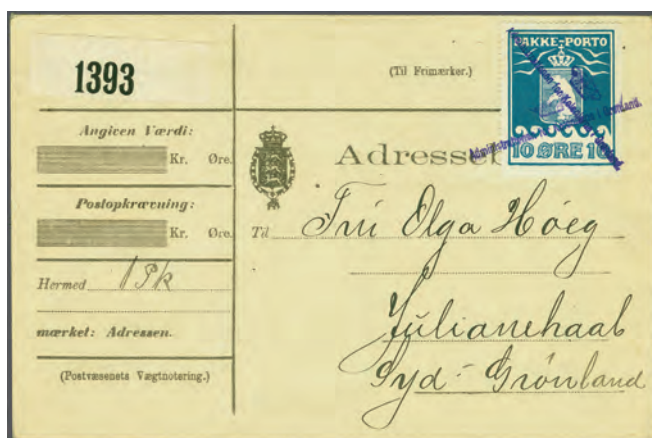 1393
(Til Frimærker.)
PAKKE-PORTO
10 ØRE 10
Angiven Værdi:
Kr. Øre.
Postopkrævning:
Kr. Øre.
Hermed 1 Pk
mærket: Adressen.
(Postvæsenets Vægtnotering.)
Adresse
Til Fru Olga Höeg
Julianehaab
Syd-Grönland